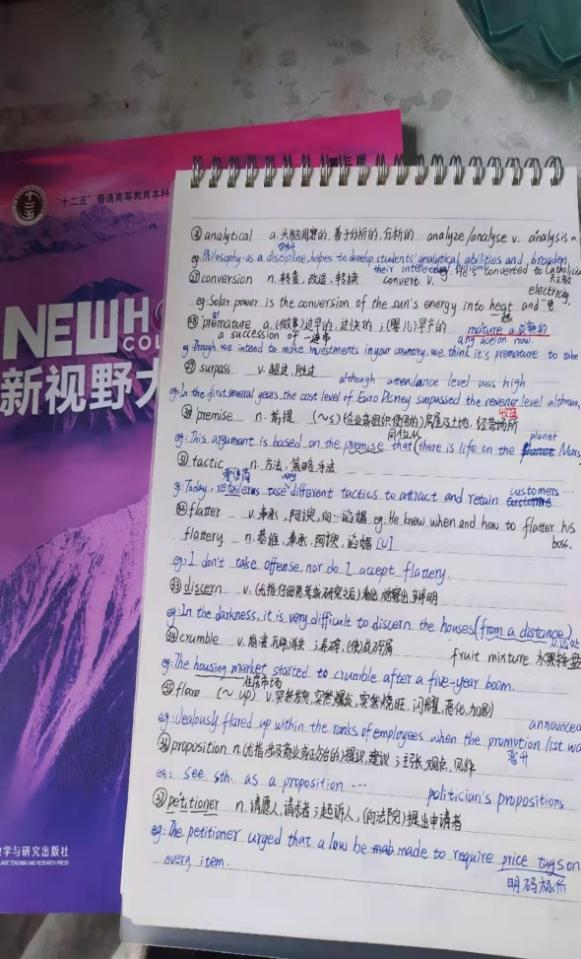 "十二五"普通高等教育本科
NEW H
COL
新视野大
教学与研究出版社
analytical a. 头脑周密的, 善于分析的, 分析的 analyze/analyse v. analysis n.
eg: Philosophy as a discipline, helps to develop students' analytical abilities and broaden
their intellectual He's converted to Catholic
conversion n. 转变, 改造, 转换 convert v.
electricity
eg: Solar power is the conversion of the sun's energy into heat and
premature a. (做事)过早的, 过快的; (婴儿)早产的 mature a. 成熟的
a succession of 一连串 any action now.
eg: Though we intend to make investments in your country, we think it's premature to take
㉙ surpass v. 超过, 胜过
although attendance level was high
eg: In the first several years, the cost level of Euro Disney surpassed the revenue level
收益
㉚ premise n. 前提 (~s) (企业或组织使用的)房屋及土地, 经营场所
同位从 planet
eg: This argument is based on the premise that (there is life on the Mars
㉛ tactic n. 方法, 策略, 手法
零售商
eg: Today, retailers use different tactics to attract and retain customers...
㉜ flatter v. 奉承, 阿谀, 向…谄媚 eg: He knew when and how to flatter his
boss.
flattery n. 恭维, 奉承, 阿谀, 谄媚 [U]
eg: I don't take offense, nor do I accept flattery.
㉝ discern v. (尤指仔细思考或研究之后)看出, 觉察出, 弄明
eg: In the darkness, it is very difficult to discern the houses (from a distance)
㉞ crumble v. 崩溃, 瓦解, 消失; 弄碎, (使)成碎屑 fruit mixture 水果拼盘
eg: The housing market started to crumble after a five-year boom.
住房市场
㉟ flare (~ up) v. 突然发怒, 突然爆发, 突然烧旺, 闪耀, 恶化, 加剧
announced
eg: Jealously flared up within the ranks of employees when the promotion list wa
晋升
㊱ proposition n. (尤指涉及商业或政治的)提议, 建议; 主张, 观点, 见解
eg: see sth. as a proposition ... politician's propositions
㊲ petitioner n. 请愿人, 请求者; 起诉人, (向法院)提出申请者
eg: The petitioner urged that a low be made to require price tags on
every item. 明码标价